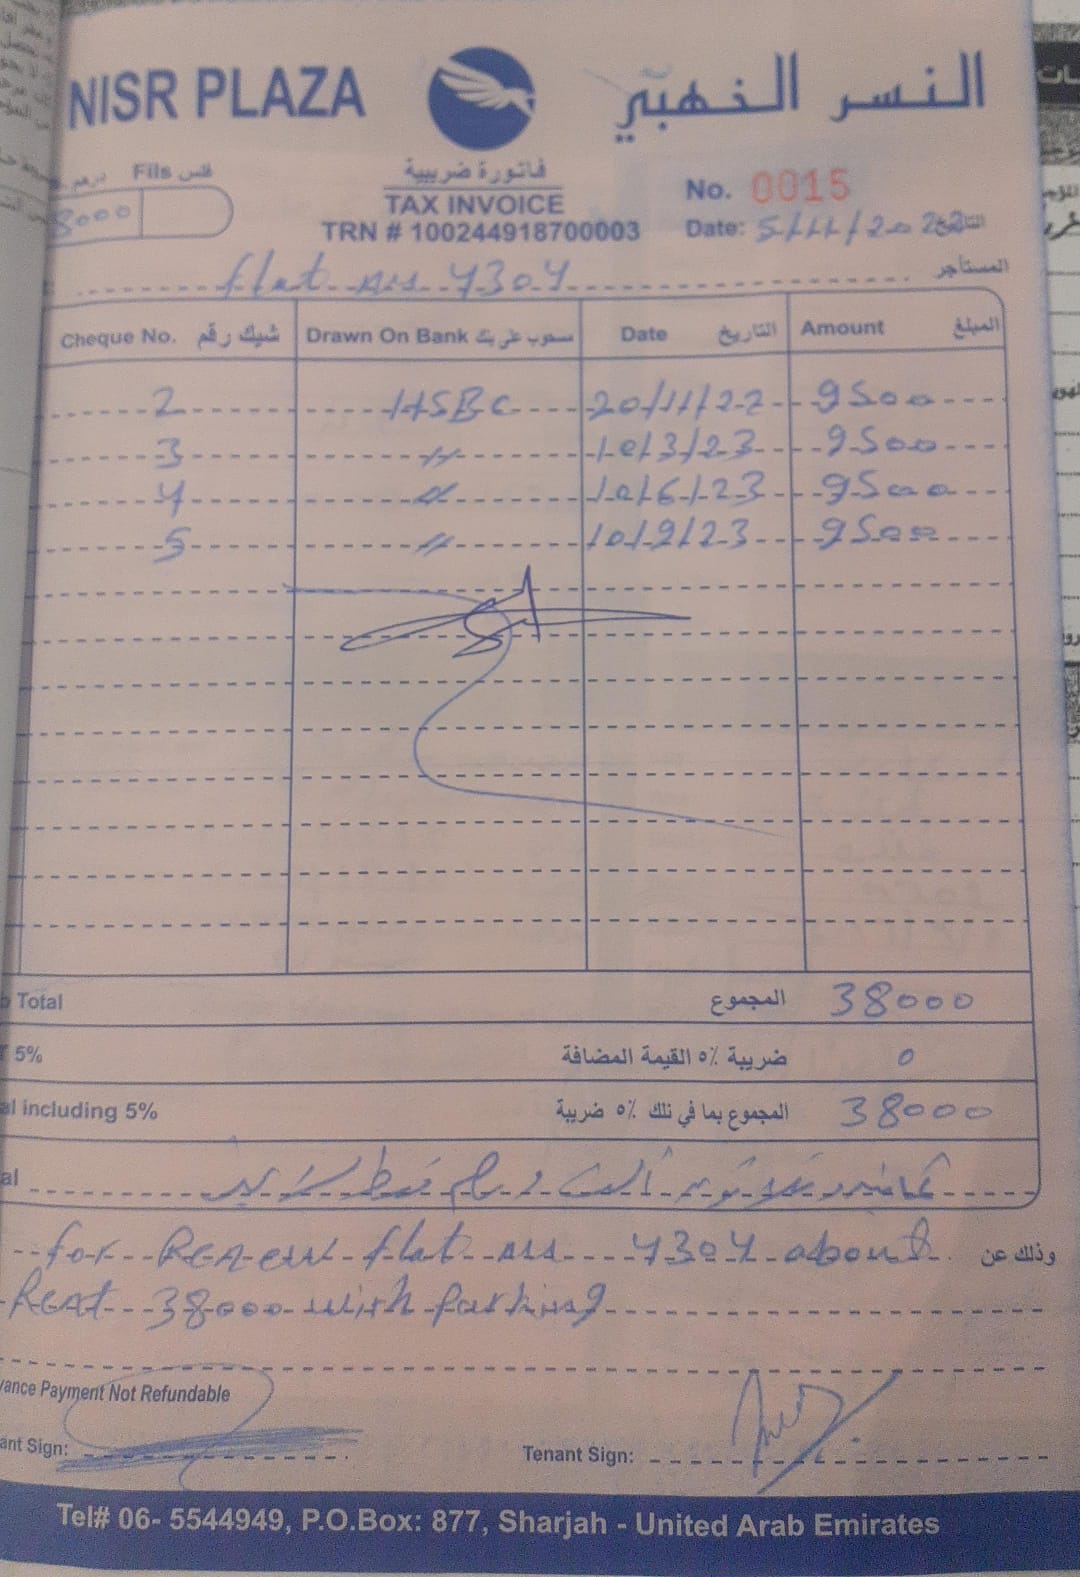 NISR PLAZA النسر الذهبي
درهم Fils فلس
8000
فاتورة ضريبية
TAX INVOICE
TRN # 100244918700003
No. 0015
Date: 5/11/2022 التاريخ
flat no 4304 المستأجر
Cheque No. شيك رقم Drawn On Bank مسحوب على بنك Date التاريخ Amount المبلغ
2 HSBC 20/11/22 9500
3 " 10/3/23 9500
4 " 10/6/23 9500
5 " 10/9/23 9500
Total المجموع 38000
5% ضريبة ٥٪ القيمة المضافة 0
including 5% المجموع بما في ذلك ٥٪ ضريبة 38000
ألف درهم فقط
for Renew flat no 4304 about وذلك عن
Rent 38000 with parking
Payment Not Refundable
Sign: Tenant Sign:
Tel# 06- 5544949, P.O.Box: 877, Sharjah - United Arab Emirates